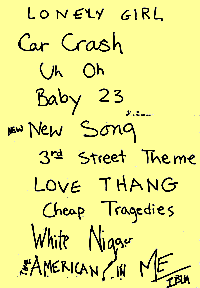 LONELY GIRL
Car Crash
Uh Oh
Baby 23
NEW New Song
3rd Street Theme
LOVE THANG
Cheap Tragedies
White Nigger
THE AMERICAN IN ME